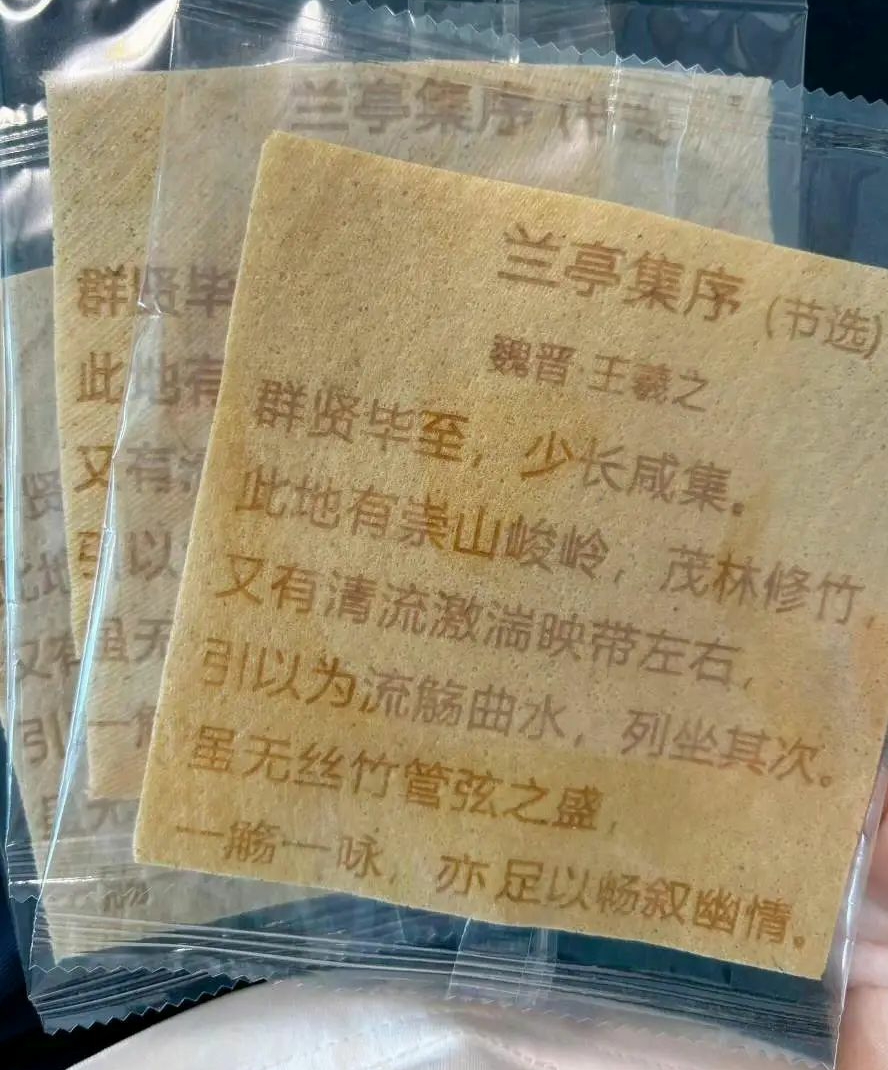 兰亭集序（节选）
魏晋·王羲之
群贤毕至，少长咸集。
此地有崇山峻岭，茂林修竹，
又有清流激湍映带左右，
引以为流觞曲水，列坐其次。
虽无丝竹管弦之盛，
一觞一咏，亦足以畅叙幽情。
兰亭集序（节选
群贤毕
此地有
又有清
引以
虽无
一觞
贤
此地
又有
引
虽无